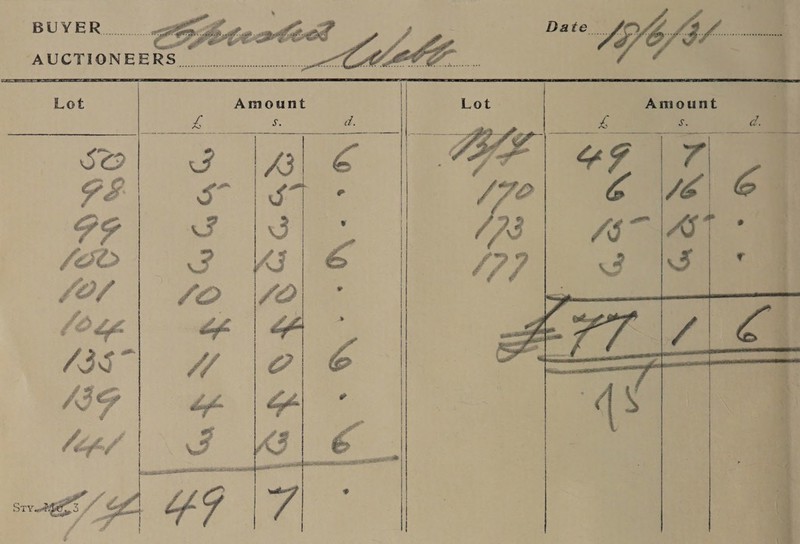 BUYER
Date 18/6/31
AUCTIONEERS Webb
Lot Amount
£ s. d.
50 3 13 6
98 5 5 .
99 3 3 .
100 3 13 6
101 10 10 .
104 4 4 .
135 11 0 6
139 4 4 .
141 3 13 6
C/F 49 7 .
STY. 3
Lot Amount
£ s. d.
B/F 49 7
170 6 16 6
173 15 15 .
177 3 3 .
£ 77 1 6
75